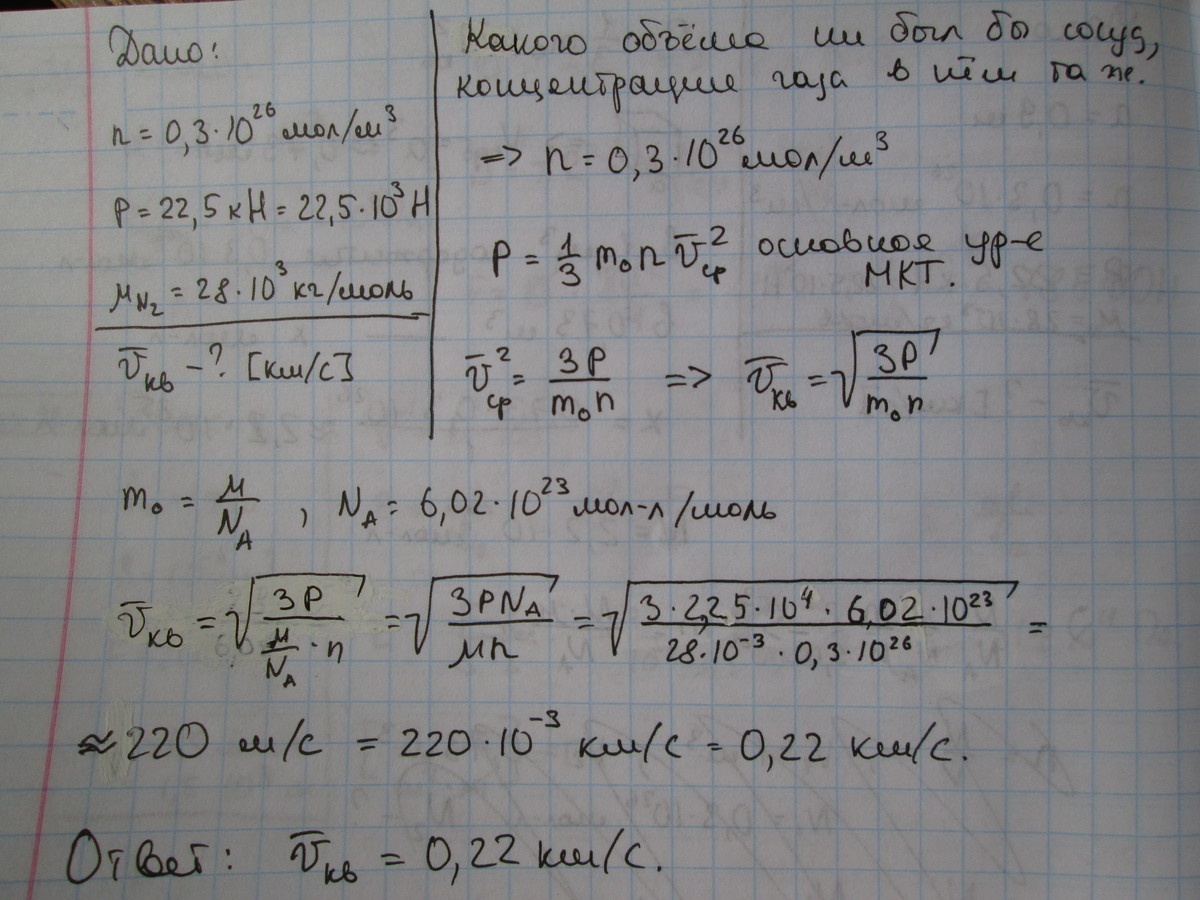 Дано:
n = 0,3·10²⁶ мол/м³
P = 22,5 кН = 22,5·10³ Н
μ_N₂ = 28·10³ кг/моль
v̅_кв – ? [км/с]
Какого объёма ни был бы сосуд,
концентрация газа в нём та же.
=> n = 0,3·10²⁶ мол/м³
P = 1/3 m₀ n v̅²_ср основное ур-е
МКТ.
v̅²_ср = 3P/(m₀n) => v̅_кв = √(3P/(m₀n))
m₀ = μ/N_A , N_A = 6,02·10²³ мол-л/моль
v̅_кв = √(3P/(μ/N_A · n)) = √(3PN_A/(μn)) = √(3·2,25·10⁴·6,02·10²³/(28·10⁻³·0,3·10²⁶)) =
≈ 220 м/с = 220·10⁻³ км/с = 0,22 км/с.
Ответ: v̅_кв = 0,22 км/с.